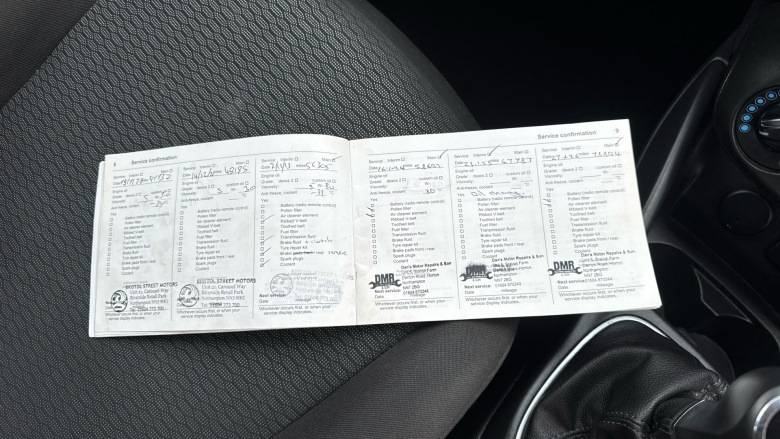 8 Service confirmation
Service: Interim Main
Date miles 41572
Engine oil:
Grade: dexos 2 custom oil
Viscosity: W-
Anti-freeze, coolant
Yes
Battery (radio remote control)
Pollen filter
Air cleaner element
Ribbed V-belt
Toothed belt
Fuel filter
Transmission fluid
Brake fluid
Tyre repair kit
Brake pads front / rear
Spark plugs
Coolant
BRISTOL STREET MOTORS
Unit 12, Carousel Way
Riverside Retail Park
Northampton NN3 9HG
Tel: 01604 773 700
Whichever occurs first, or when your
service display indicates.
Service: Interim Main
Date miles 48185
Engine oil:
Grade: dexos 2 custom oil
Viscosity: 5 W- 30
Anti-freeze, coolant
Yes
Battery (radio remote control)
Pollen filter
Air cleaner element
Ribbed V-belt
Toothed belt
Fuel filter
Transmission fluid
Brake fluid
Tyre repair kit
Brake pads front / rear
Spark plugs
Coolant
BRISTOL STREET MOTORS
Unit 12, Carousel Way
Riverside Retail Park
Northampton NN3 9HG
Tel: 01604 773 700
Whichever occurs first, or when your
service display indicates.
Service: Interim Main
Date miles 56305
Engine oil:
Grade: dexos 2 custom oil
Viscosity: 5 W- 30
Anti-freeze, coolant
Yes
Battery (radio remote control)
Pollen filter
Air cleaner element
Ribbed V-belt
Toothed belt
Fuel filter
Transmission fluid
Brake fluid + clutch
Tyre repair kit
Brake pads front / rear
Spark plugs
Coolant
Next service:
Date mileage
Whichever occurs first, or when your
service display indicates.
Service confirmation 9
Service: Interim Main
Date miles
Engine oil:
Grade: dexos 2 custom oil
Viscosity: W-
Anti-freeze, coolant
Yes
Battery (radio remote control)
Pollen filter
Air cleaner element
Ribbed V-belt
Toothed belt
Fuel filter
Transmission fluid
Brake fluid
Tyre repair kit
Brake pads front / rear
Spark plugs
Coolant
DMR
Dan's Motor Repairs & Son
Northampton
NN7 2BG
01604 870244
Next service:
Date mileage
Whichever occurs first, or when your
service display indicates.
Service: Interim Main
Date miles 67787
Engine oil:
Grade: dexos 2 custom oil
Viscosity: W-
Anti-freeze, coolant
Yes
Battery (radio remote control)
Pollen filter
Air cleaner element
Ribbed V-belt
Toothed belt
Fuel filter
Transmission fluid
Brake fluid
Tyre repair kit
Brake pads front / rear
Spark plugs
Coolant
Dan's Motor Repairs & Son
Northampton
NN7 2BG
01604 870244
Next service:
Date mileage
Whichever occurs first, or when your
service display indicates.
Service: Interim Main
Date miles
Engine oil:
Grade: dexos 2 custom oil
Viscosity: W-
Anti-freeze, coolant
Yes
Battery (radio remote control)
Pollen filter
Air cleaner element
Ribbed V-belt
Toothed belt
Fuel filter
Transmission fluid
Brake fluid
Tyre repair kit
Brake pads front / rear
Spark plugs
Coolant
DMR
Dan's Motor Repairs & Son
Northampton
NN7 2BG
01604 870244
Next service:
Date mileage
Whichever occurs first, or when your
service display indicates.